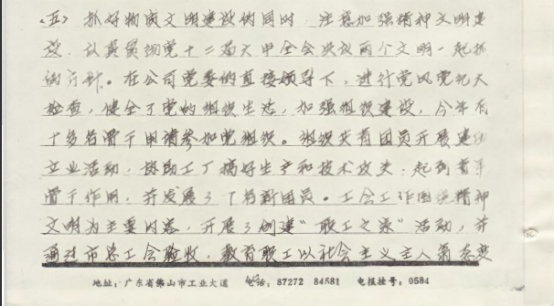 (五) 抓好物质文明建设的同时，注意加强精神文明建
设，认真贯彻党十二届六中全会决议两个文明一起抓
的方针。在公司党委的直接领导下，进行党风党纪大
检查，健全了党的组织生活，加强组织建设，今年有
十多名骨干申请参加党组织。组织共青团员开展建功
立业活动，协助工厂搞好生产和技术攻关，起到青年
骨干作用，并发展了 名新团员。工会工作围绕精神
文明为主要内容，开展了创建“职工之家”活动，并
通过市总工会验收，教育职工以社会主义主人翁态度
地址：广东省佛山市工业大道 电话：87272 84581 电报挂号：0584